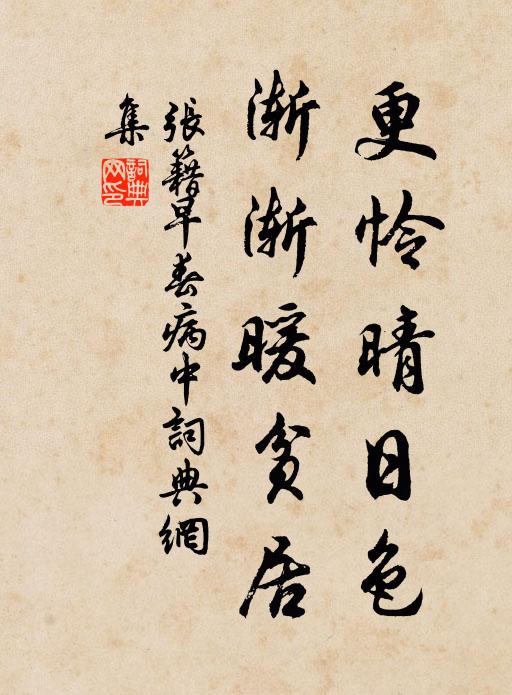 更怜晴日色
渐渐暖贫居
張籍早春病中詞典網
集
詞典
网印